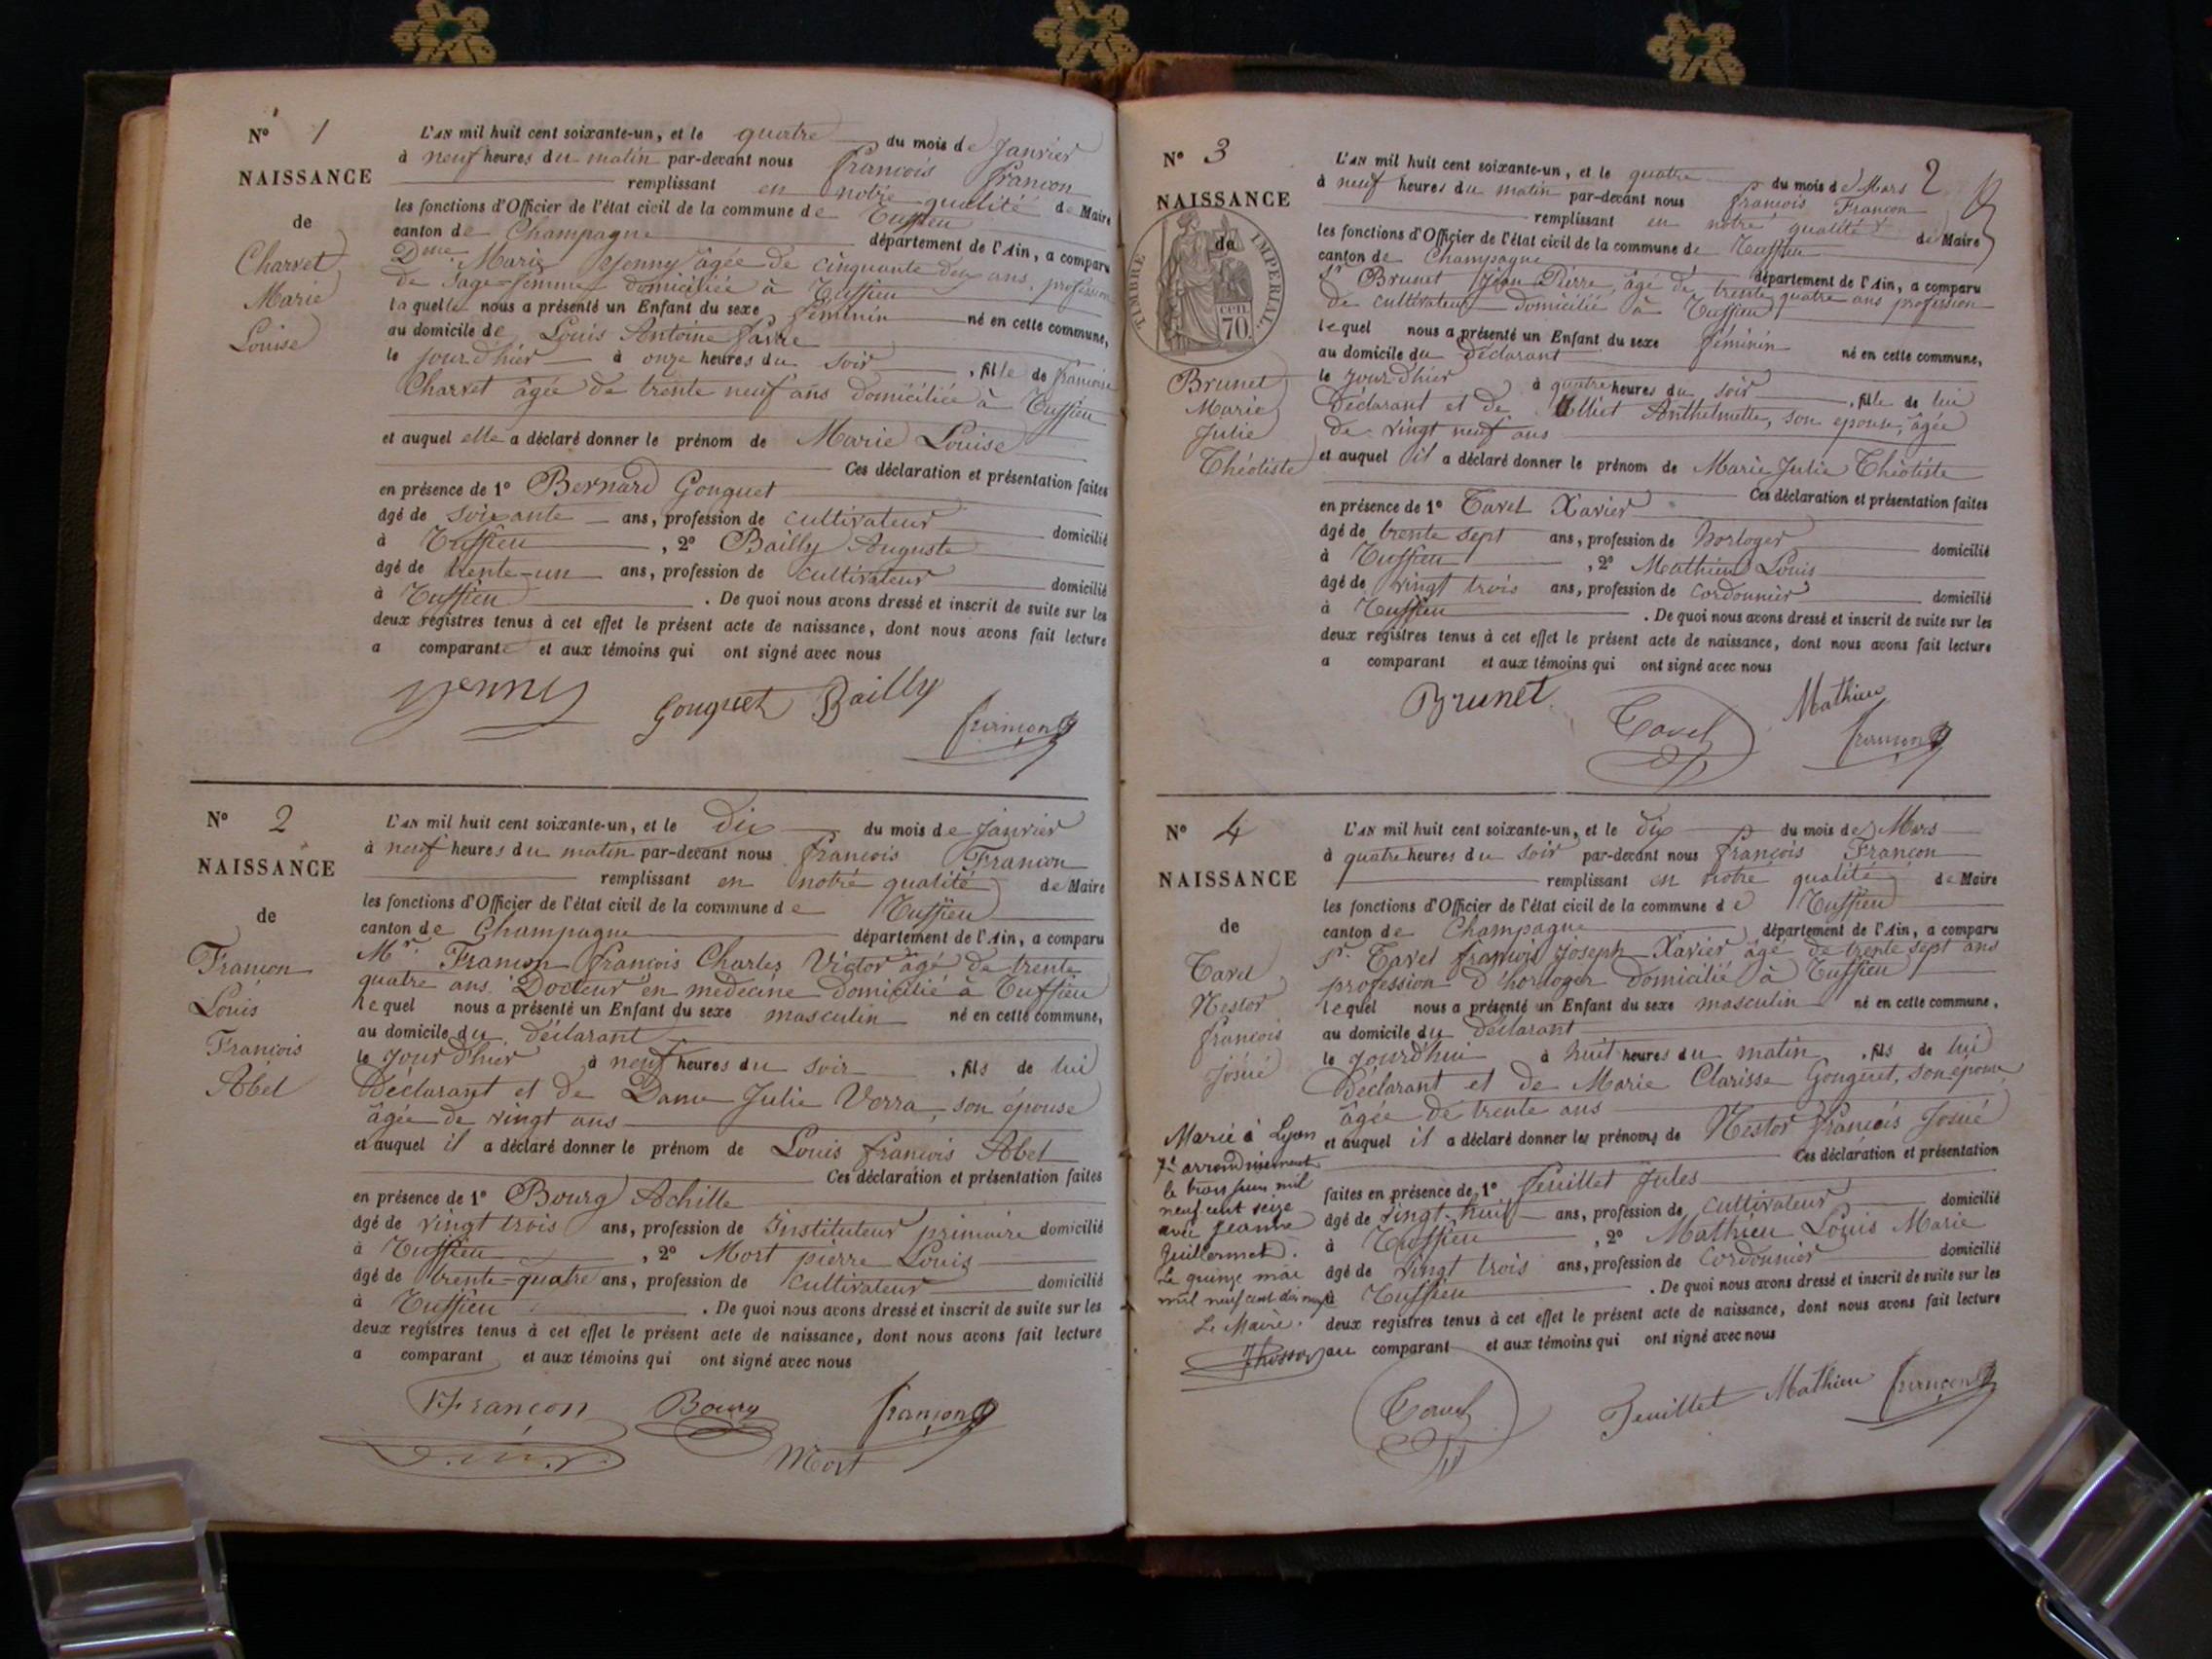 N° 1
NAISSANCE
de
Charvet
Marie
Louise
L'AN mil huit cent soixante-un, et le quatre du mois de Janvier
à neuf heures du matin par-devant nous françois françon
remplissant en notre qualité de Maire
les fonctions d'Officier de l'état civil de la commune de Tuffieu
canton de Champagne département de l'Ain, a comparu
Dme Marie Jenny âgée de cinquante deux ans, profession
de Sage-femme domiciliée à Tuffieu
laquelle nous a présenté un Enfant du sexe féminin né en cette commune,
au domicile de Louis Antoine favre
le jour d'hier à onze heures du soir, fille de françoise
Charvet âgée de trente neuf ans domiciliée à Tuffieu
et auquel elle a déclaré donner le prénom de Marie Louise
Ces déclaration et présentation faites
en présence de 1° Bernard Gonguet
âgé de soixante ans, profession de cultivateur domicilié
à Tuffieu, 2° Bailly Auguste
âgé de trente-un ans, profession de cultivateur domicilié
à Tuffieu. De quoi nous avons dressé et inscrit de suite sur les
deux registres tenus à cet effet le présent acte de naissance, dont nous avons fait lecture
a comparante et aux témoins qui ont signé avec nous
Jenny Gonguet Bailly
françon
N° 2
NAISSANCE
de
Françon
Louis
François
Abel
L'AN mil huit cent soixante-un, et le dix du mois de Janvier
à neuf heures du matin par-devant nous françois Françon
remplissant en notre qualité de Maire
les fonctions d'Officier de l'état civil de la commune de Tuffieu
canton de Champagne département de l'Ain, a comparu
Mr. Françon françois Charles Victor âgé de trente
quatre ans Docteur en médecine domicilié à Tuffieu
lequel nous a présenté un Enfant du sexe masculin né en cette commune,
au domicile du déclarant
le jour d'hier à neuf heures du soir, fils de lui
Déclarant et de Dame Julie Verra, son épouse
âgée de vingt ans
et auquel il a déclaré donner le prénom de Louis françois Abel
Ces déclaration et présentation faites
en présence de 1° Bourg Achille
âgé de vingt trois ans, profession de Instituteur primaire domicilié
à Tuffieu, 2° Mort pierre Louis
âgé de trente-quatre ans, profession de cultivateur domicilié
à Tuffieu. De quoi nous avons dressé et inscrit de suite sur les
deux registres tenus à cet effet le présent acte de naissance, dont nous avons fait lecture
a comparant et aux témoins qui ont signé avec nous
Françon Bourg françon
Mort
2
N° 3
NAISSANCE
de
TIMBRE IMPERIAL
CEN. 70.
Brunet
Marie
Julie
Théotiste
L'AN mil huit cent soixante-un, et le quatre du mois de Mars
à neuf heures du matin par-devant nous françois Françon
remplissant en notre qualité de Maire
les fonctions d'Officier de l'état civil de la commune de Tuffieu
canton de Champagne département de l'Ain, a comparu
Sr Brunet Jean Pierre, âgé de trente quatre ans profession
de cultivateur domicilié à Tuffieu
lequel nous a présenté un Enfant du sexe féminin né en cette commune,
au domicile du déclarant
le jour d'hier à quatre heures du soir, fille de lui
Déclarant et de Anthelmette, son epouse, âgée
de vingt neuf ans
et auquel il a déclaré donner le prénom de Marie Julie Théotiste
Ces déclaration et présentation faites
en présence de 1° Tavel Xavier
âgé de trente sept ans, profession de horloger domicilié
à Tuffieu, 2° Mathieu Louis
âgé de vingt trois ans, profession de Cordonnier domicilié
à Tuffieu. De quoi nous avons dressé et inscrit de suite sur les
deux registres tenus à cet effet le présent acte de naissance, dont nous avons fait lecture
a comparant et aux témoins qui ont signé avec nous
Brunet Tavel Mathieu
françon
N° 4
NAISSANCE
de
Tavel
Nestor
françois
Josué
L'AN mil huit cent soixante-un, et le dix du mois de Mars
à quatre heures du soir par-devant nous françois Françon
remplissant en notre qualité de Maire
les fonctions d'Officier de l'état civil de la commune de Tuffieu
canton de Champagne département de l'Ain, a comparu
Sr. Tavel françois Joseph Xavier âgé de trente sept ans
profession d'horloger domicilié à Tuffieu
lequel nous a présenté un Enfant du sexe masculin né en cette commune,
au domicile du déclarant
le jourd'hui à huit heures du matin, fils de lui
Déclarant et de Marie Clarisse Gonguet, son épouse
âgée de trente ans
et auquel il a déclaré donner les prénoms de Nestor françois Josué
Ces déclaration et présentation
faites en présence de 1° feuillet Jules
âgé de vingt-huit ans, profession de cultivateur domicilié
à Tuffieu, 2° Mathieu Louis Marie
âgé de vingt trois ans, profession de Cordonnier domicilié
à Tuffieu. De quoi nous avons dressé et inscrit de suite sur les
deux registres tenus à cet effet le présent acte de naissance, dont nous avons fait lecture
au comparant et aux témoins qui ont signé avec nous
Marié à Lyon
7e arrondissement
le trois juin mil
neuf cent seize
avec Jeanne
Guillermet.
Le quinze mai
mil neuf cent dix neuf
Le Maire.
Tavel Feuillet Mathieu françon